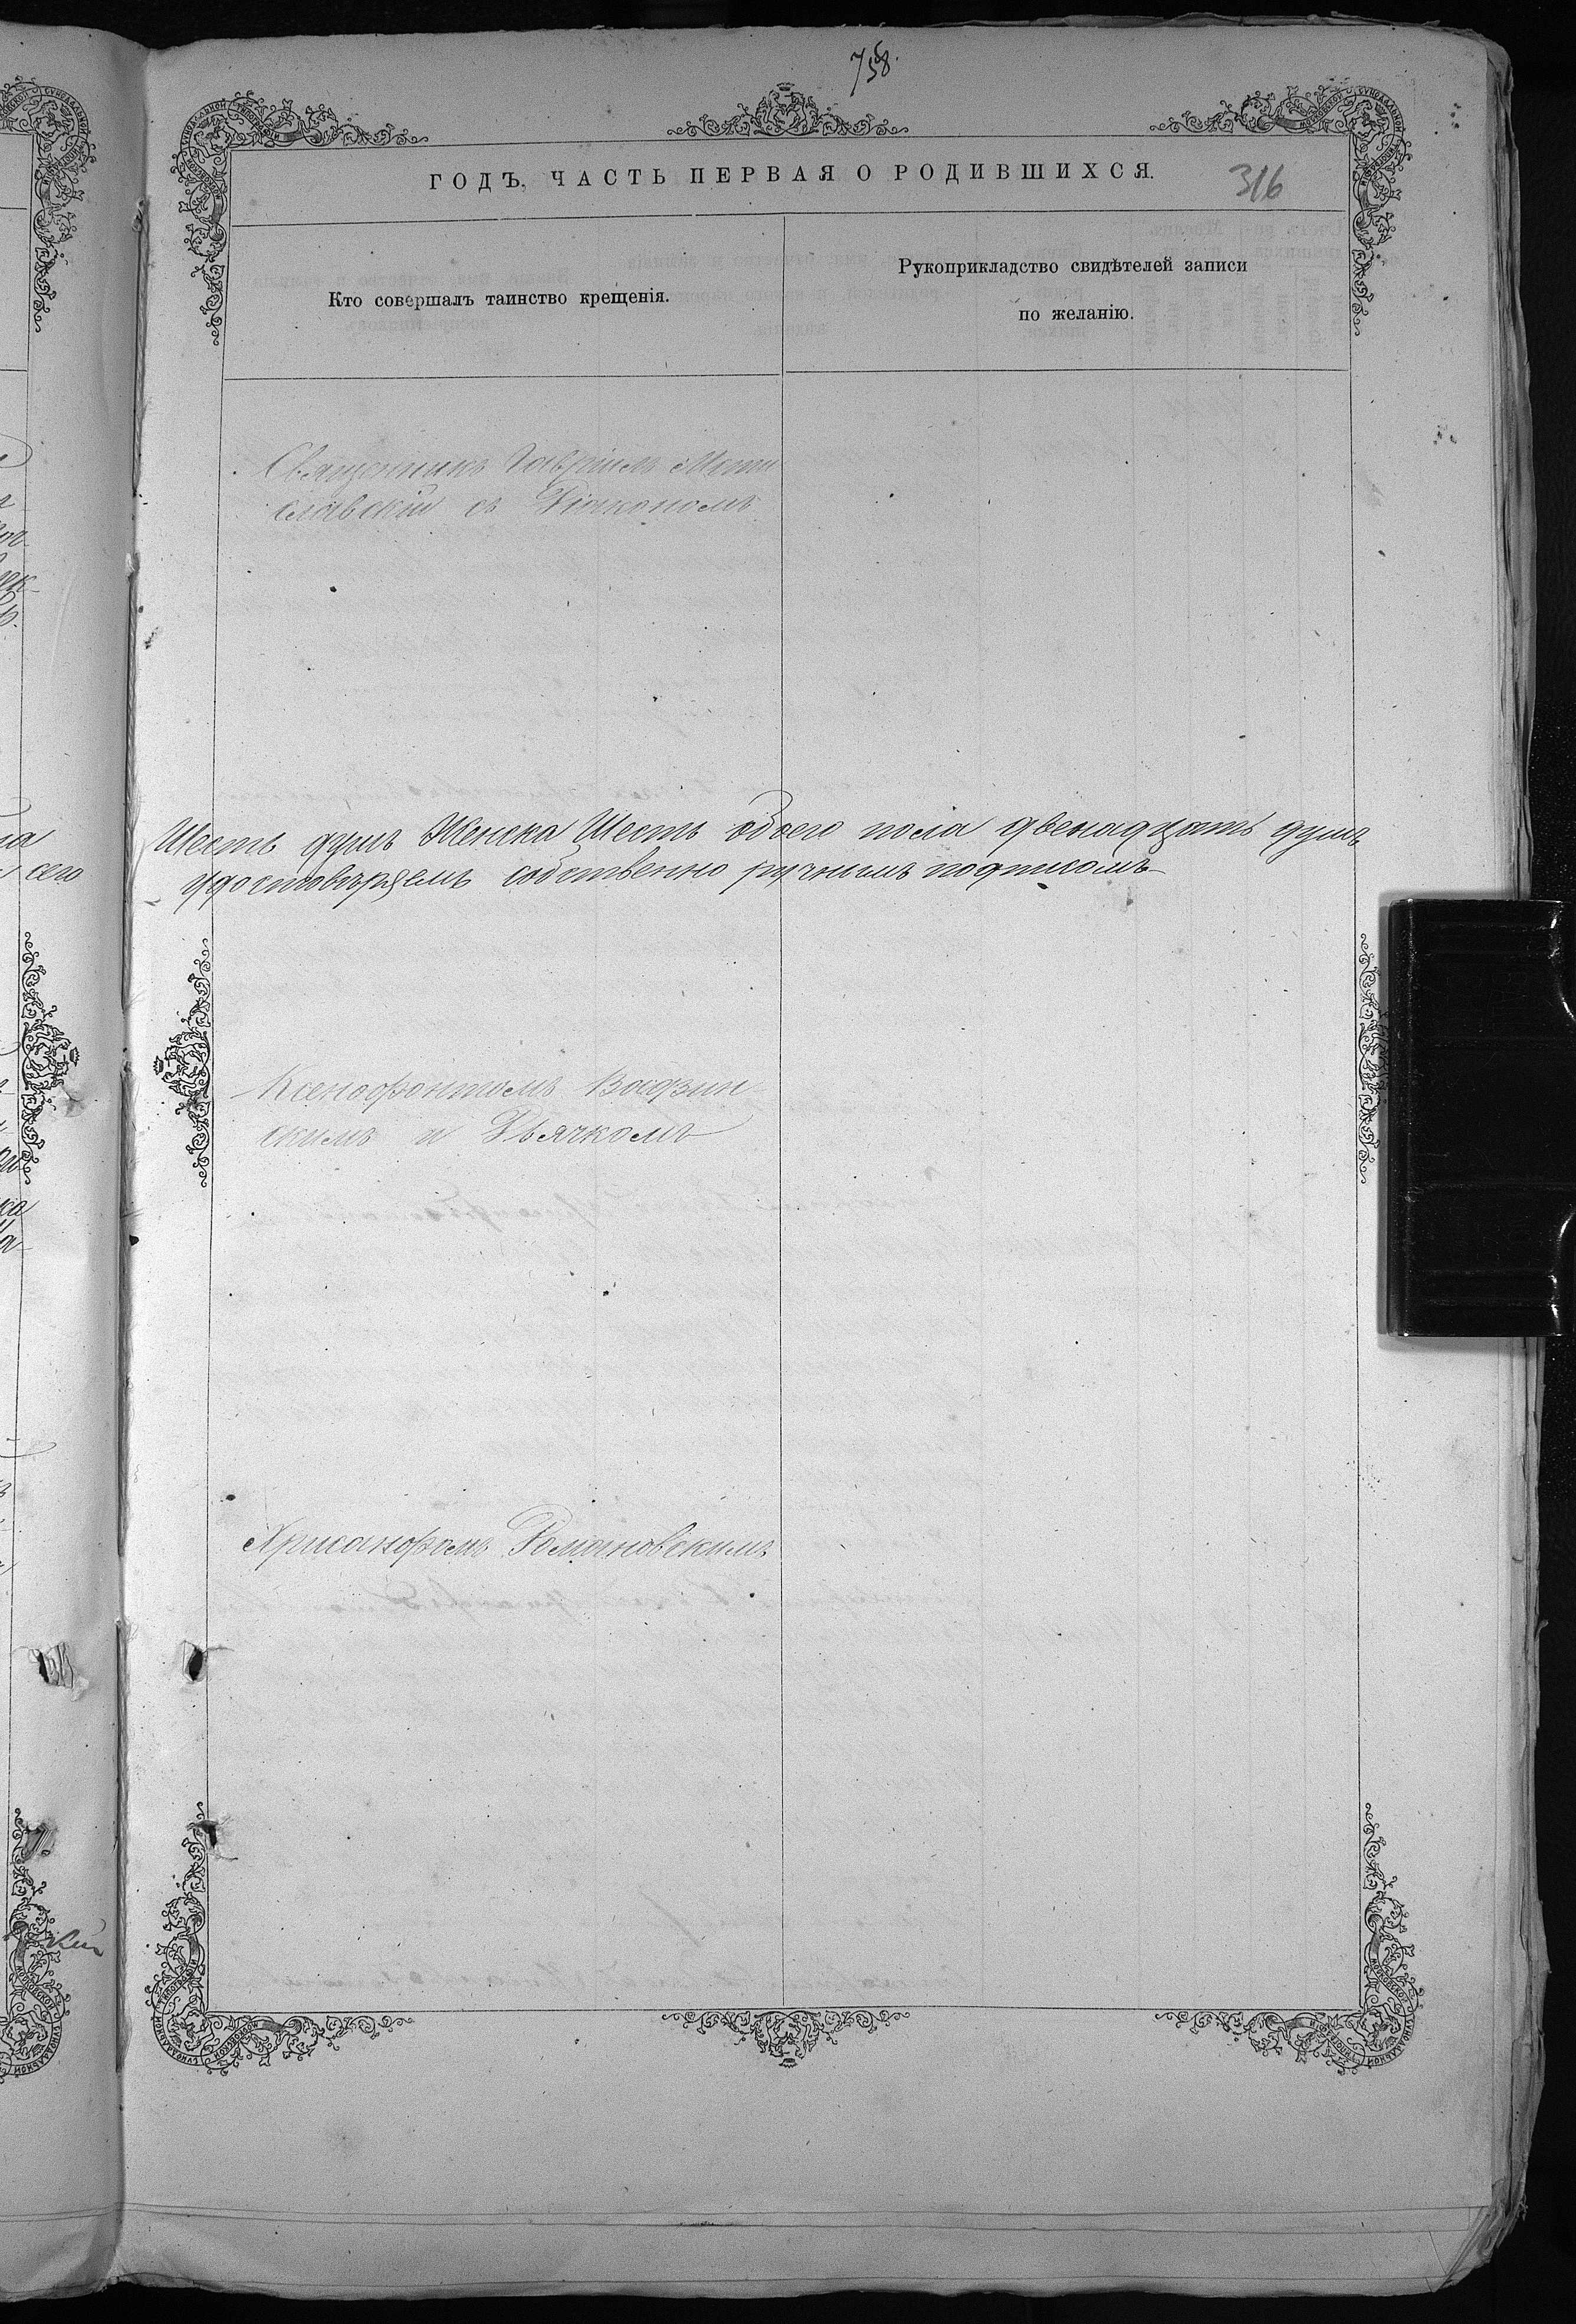 758.
ГОДЪ, ЧАСТЬ ПЕРВАЯ О РОДИВШИХСЯ.
316
Кто совершалъ таинство крещенія.
Рукоприкладство свидѣтелей записи
по желанію.
Священникъ Гавріилъ Мсти
славскій съ Діакономъ
Шесть душъ Женска Шесть обоего пола двенадцать душъ
удостовѣряемъ собственно ручнымъ подписомъ
сего
Ксенофонтомъ
скимъ и Дьячкомъ
Хрисанфомъ Романовскимъ